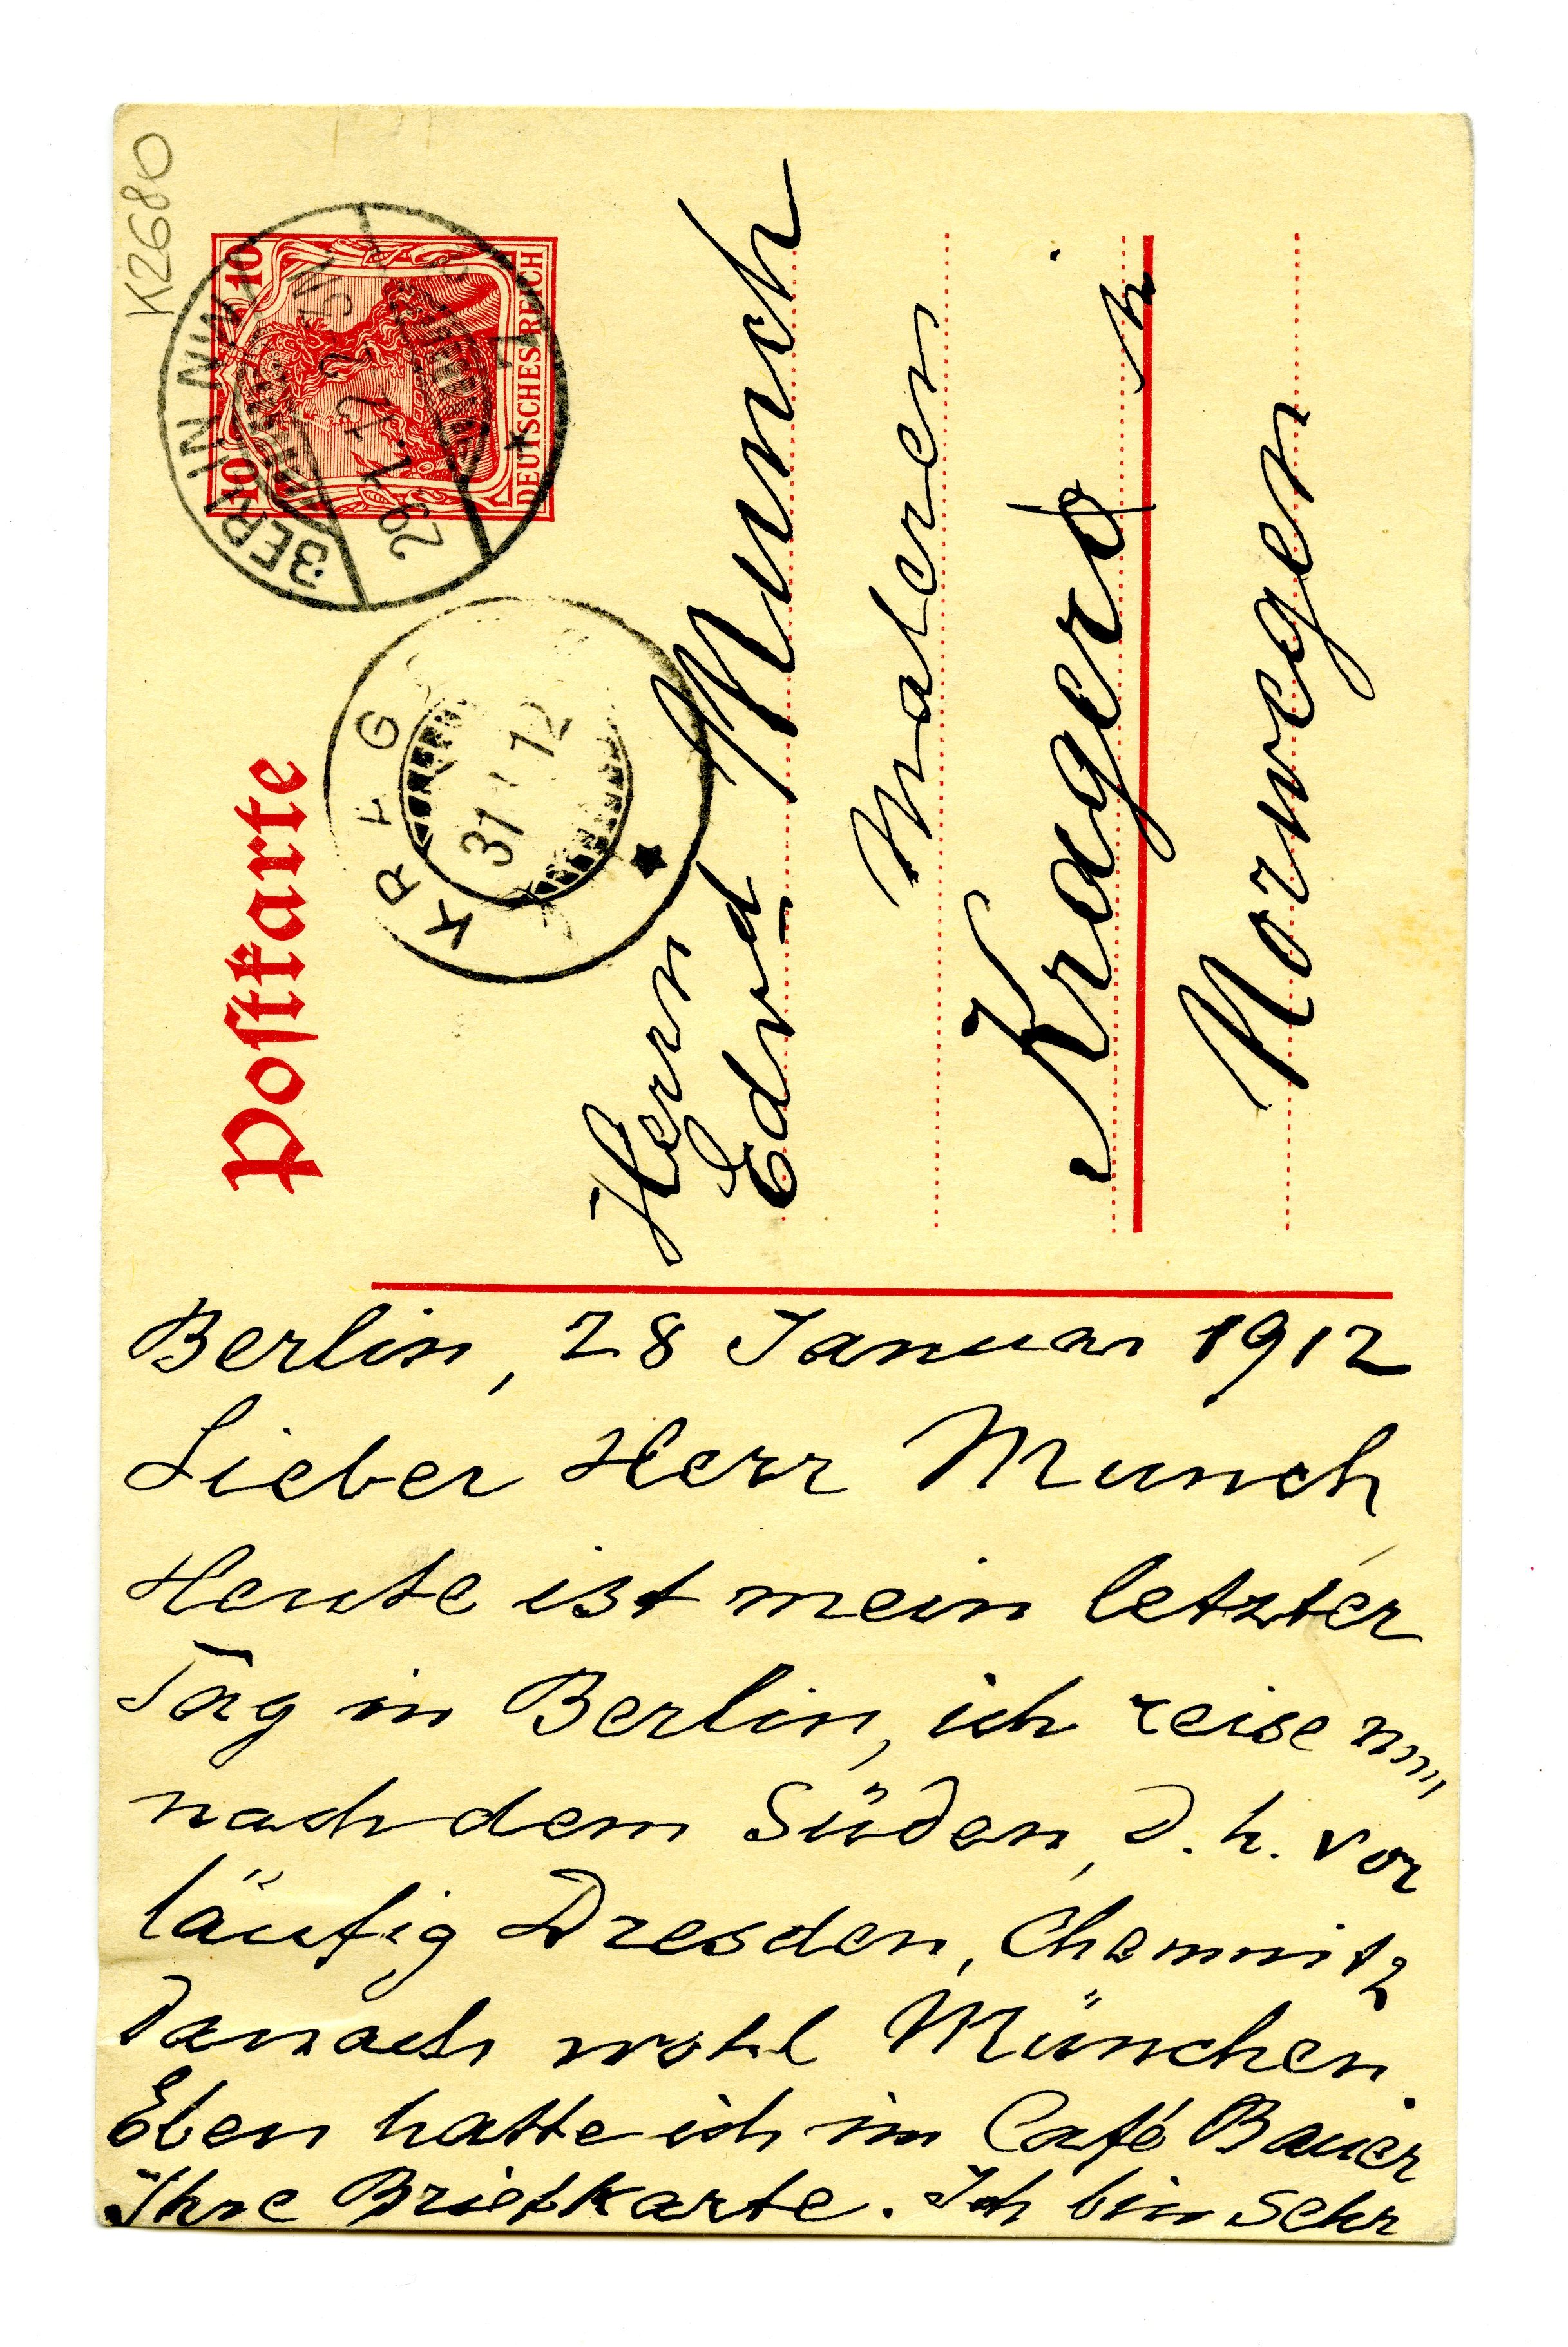 K2680
Postkarte
10 10
DEUTSCHES REICH
BERLIN NW
29.1.12
KRAG
31 12
Herrn
Edvd Munch
Maleren
Kragerø
Norwegen
Berlin, 28 Januar 1912
Lieber Herr Munch
Heute ist mein letzter
Tag in Berlin, ich reise nun
nach dem Süden, d. h. vor
läufig Dresden, Chemnitz
danach wohl München.
Eben hatte ich im Café Bauer
Ihre Briefkarte. Ich bin sehr